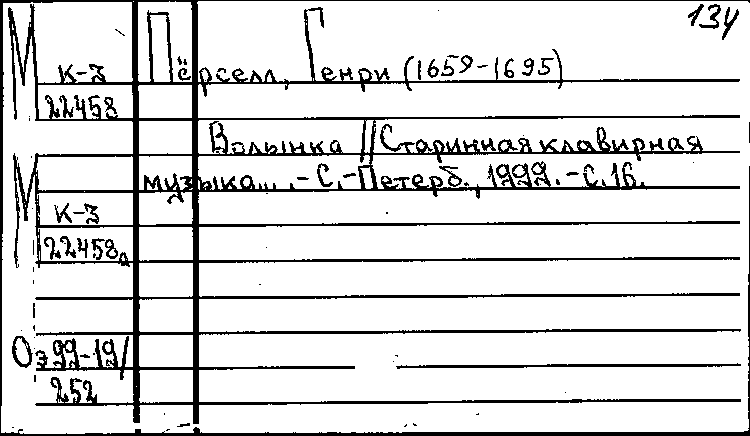 134
М Пёрселл, Генри (1659-1695)
к-3
22458
Волынка // Старинная клавирная
М музыка... .-С.-Петерб., 1999.-С.16.
к-3
22458а
Оэ99-19/
252